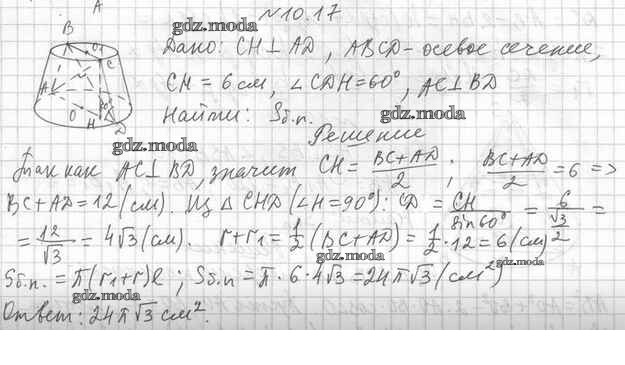 №10.17
Дано: CH⊥AD, ABCD-осевое сечение,
CH = 6 см, ∠CDH=60°, AC⊥BD
Найти: Sб.п.
Решение
Так как AC⊥BD, значит CH = (BC+AD)/2; (BC+AD)/2 = 6 =>
BC+AD=12(см). Из △CHD (∠H=90°): CD = CH/sin60° = 6/(√3/2) =
= 12/√3 = 4√3(см). r+r₁ = 1/2 (BC+AD) = 1/2·12 = 6(см)
Sб.п. = π(r₁+r)l; Sб.п = π·6·4√3 = 24π√3 (см²)
Ответ: 24π√3 см².
B
O₁
C
A
O
H
D
60°
A
gdz.moda
gdz.moda
gdz.moda
gdz.moda
gdz.moda
gdz.moda